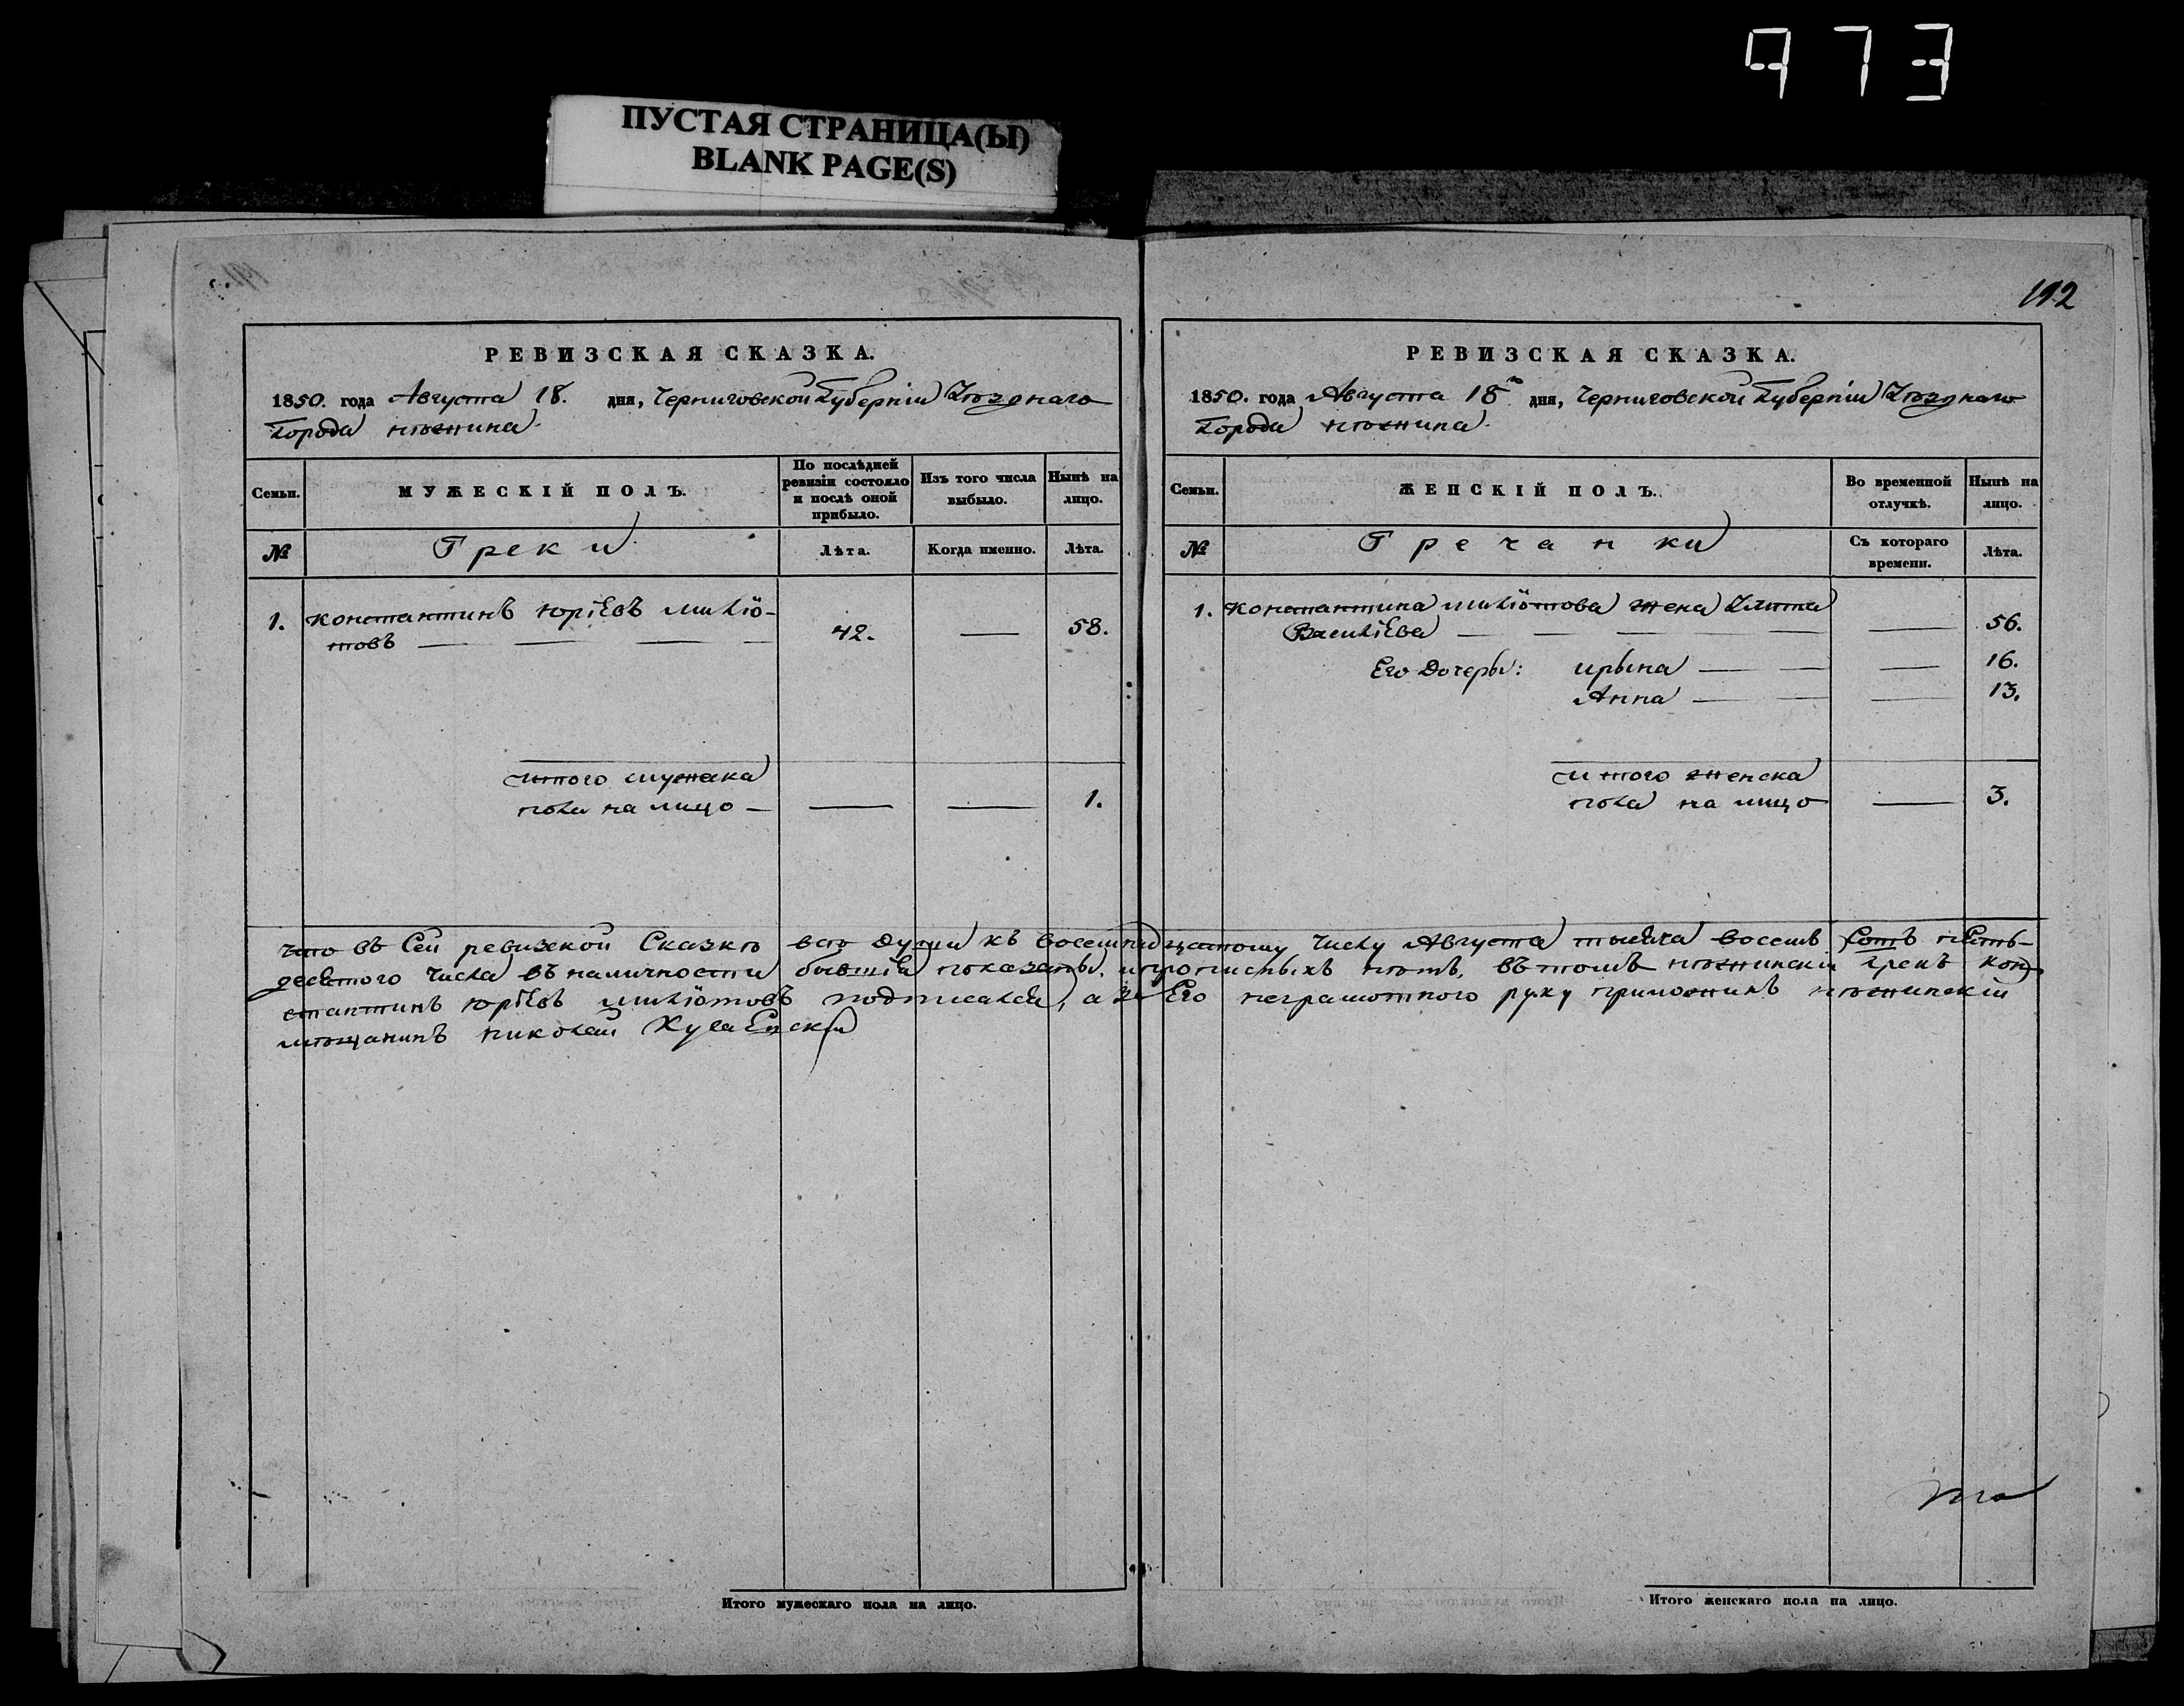 973
ПУСТАЯ СТРАНИЦА(Ы)
BLANK PAGE(S)
РЕВИЗСКАЯ СКАЗКА.
1850. года Августа 18. дня, Черниговской Губерніи Уѣзднаго
города нѣжина.
Семьи. МУЖЕСКІЙ ПОЛЪ. По послѣдней ревизіи состояло и послѣ оной прибыло. Изъ того числа выбыло. Нынѣ на лицо.
№ Греки Лѣта. Когда именно. Лѣта.
1. константинъ юрїевъ милїо-
товъ — — — 42. — 58.
итого мужска
пола на лицо — — — 1.
192
РЕВИЗСКАЯ СКАЗКА.
1850. года Августа 18го дня, Черниговской Губерніи Уѣзднаго
города нѣжина.
Семьи. ЖЕНСКІЙ ПОЛЪ. Во временной отлучкѣ. Нынѣ на лицо.
№ Гречанки Съ котораго времени. Лѣта.
1. константина милїотова жена
Василїева — — — — — — 56.
Его дочеры: ирына — — — 16.
Анна — — — 13.
итого женска
пола на лицо — 3.
что въ сей ревизской сказкѣ всѣ души къ восемнадцатому числу Августа тысяча восемъ сотъ пять-
десятого числа въ наличности бывшїя показаны, и прописныхъ нѣтъ, въ томъ нѣжинскій грекъ кон-
стантинъ юрїевъ милїотовъ подписался, а за Его неграмотного руку приложилъ нѣжинскій
мѣщанинъ николай
Итого мужескаго пола на лицо.
Итого женскаго пола на лицо.